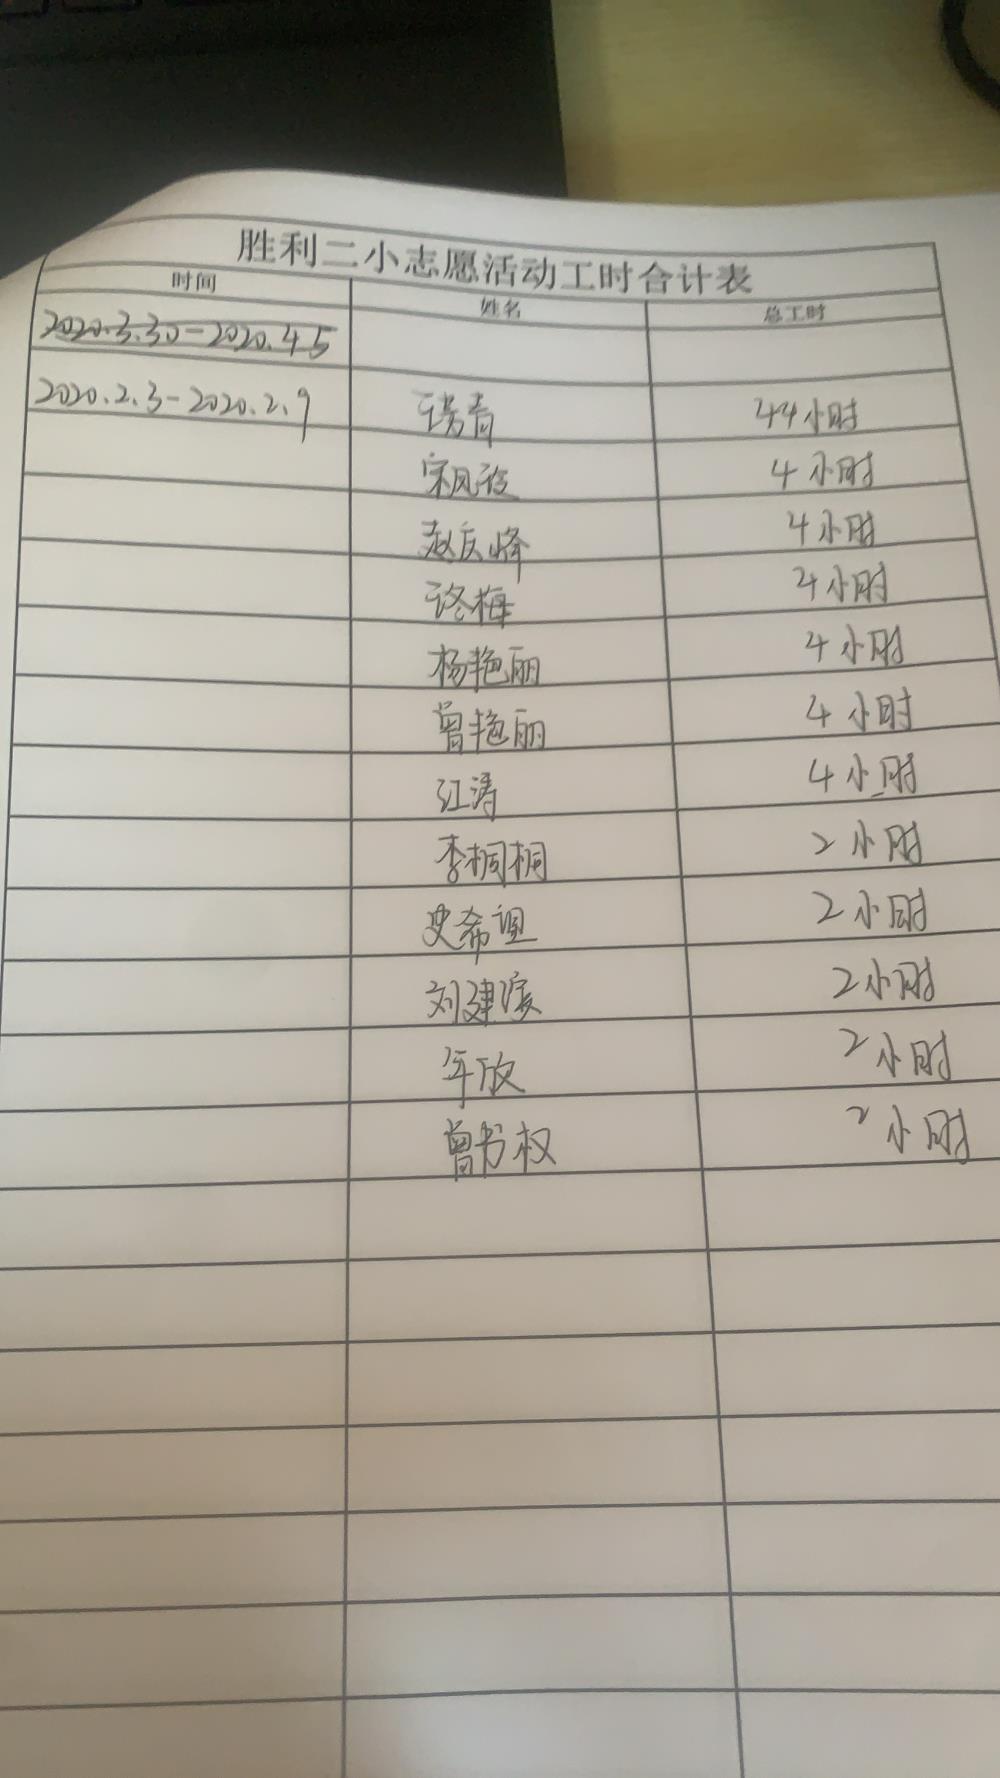 胜利二小志愿活动工时合计表
时间 姓名 总工时
2020.3.30-2020.4.5
2020.2.3-2020.2.9 44小时
4小时
赵庆峰 4小时
4小时
杨艳丽 4小时
曾艳丽 4小时
江涛 4小时
李桐桐 2小时
史希 2小时
刘建 2小时
年放 2小时
曾书权 2小时